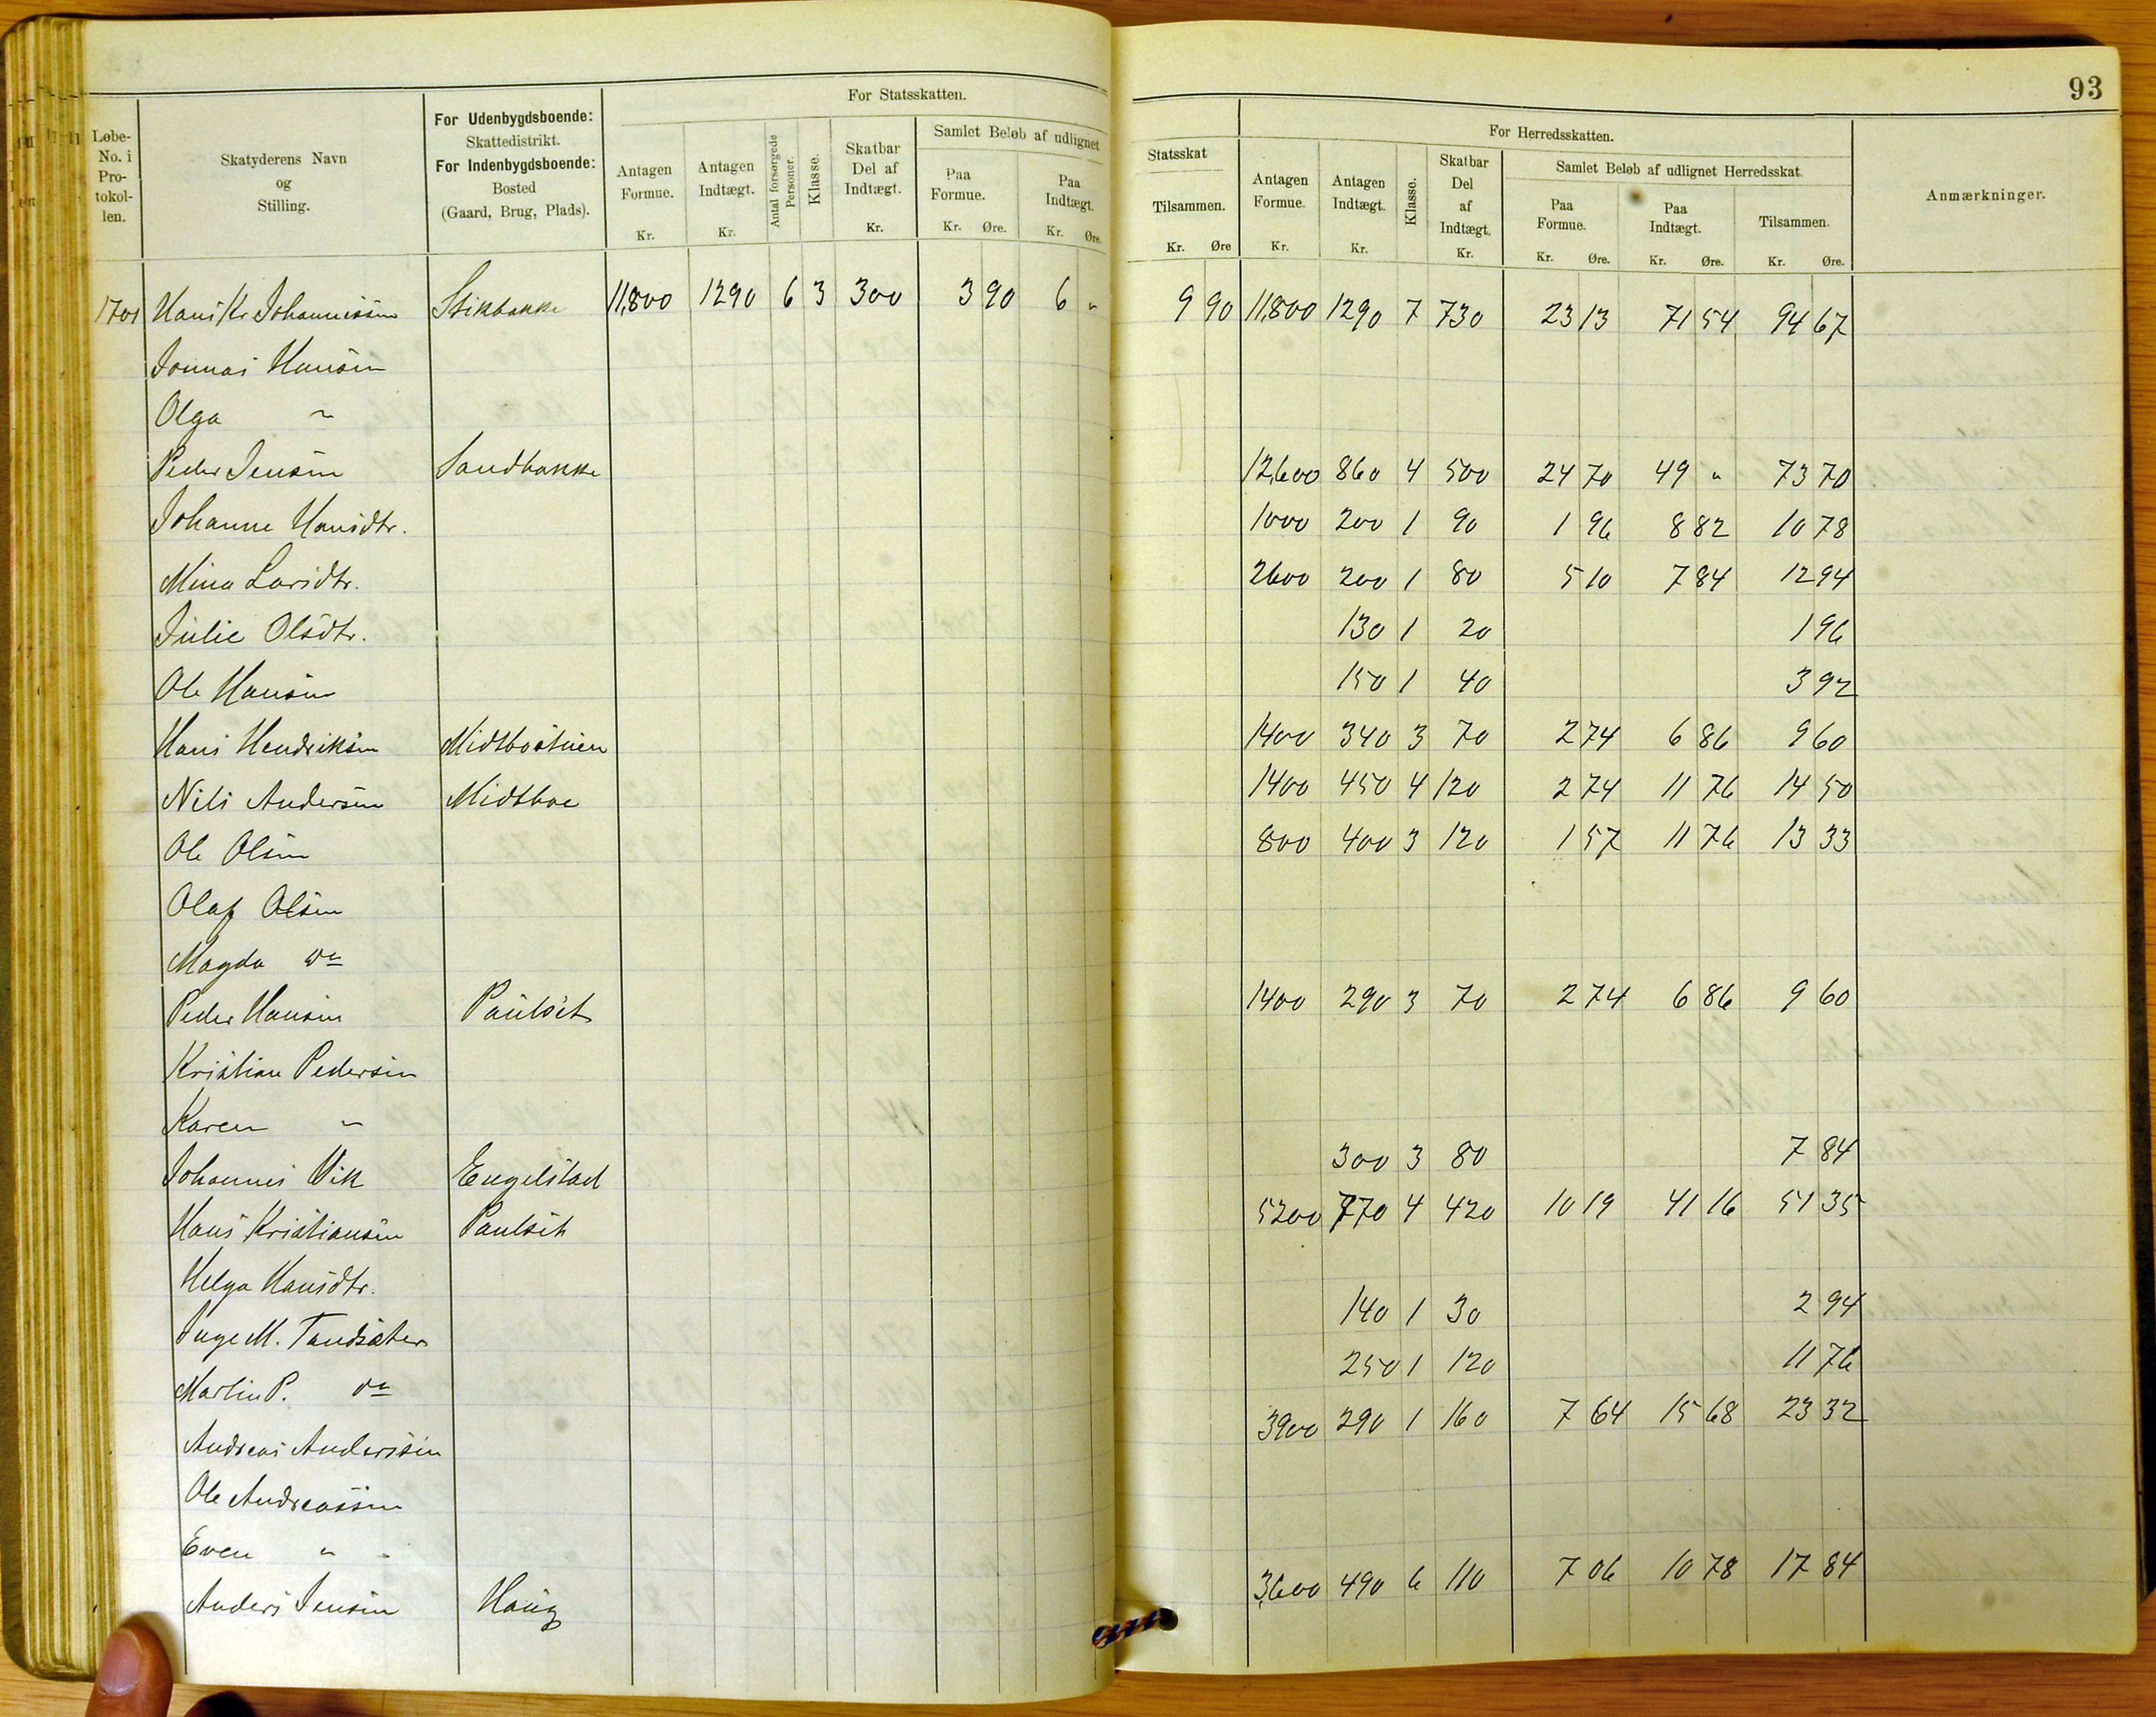 93
Løbe-No. i Protokollen.
Skatyderens Navn og Stilling.
For Udenbygdsboende: Skattedistrikt. For Indenbygdsboende: Bosted (Gaard, Brug, Plads).
For Statsskatten.
Antagen Formue. Kr.
Antagen Indtægt. Kr.
Antal forsørgede Personer.
Klasse.
Skatbar Del af Indtægt. Kr.
Samlet Beløb af udlignet
Paa Formue. Kr. Øre.
Paa Indtægt. Kr. Øre.
Statsskat
Tilsammen. Kr. Øre
For Herredsskatten.
Antagen Formue. Kr.
Antagen Indtægt. Kr.
Klasse.
Skatbar Del af Indtægt. Kr.
Samlet Beløb af udlignet Herredsskat.
Paa Formue. Kr. Øre.
Paa Indtægt. Kr. Øre.
Tilsammen. Kr. Øre.
Anmærkninger.
1701 Hans Kr Johannessen Stikbakke 11,800 1290 6 3 300 3 90 6 " 9 90 11,800 1290 7 730 23 13 71 54 94 67
Jonnas Hansen
Olga "
Peder Jensen Sandbakke 12,600 860 4 500 24 70 49 " 73 70
Johanne Hansdtr. 1000 200 1 90 1 96 8 82 10 78
Mina Larsdtr. 2600 200 1 80 5 10 7 84 12 94
Julie Olsdtr. 130 1 20 1 96
Ole Hansen 150 1 40 3 92
Hans Hendriksen Midtbøstuen 1400 340 3 70 2 74 6 86 9 60
Nils Andersen Midtboe 1400 450 4 120 2 74 11 76 14 50
Ole Olsen 800 400 3 120 1 57 11 76 13 33
Olaf Olsen
Magda do
Peder Hansen Paulset 1400 290 3 70 2 74 6 86 9 60
Kristian Pedersen
Karen "
Johannes Vik Engelstad 300 3 80 7 84
Hans Kristiansen Paulset 5200 770 4 420 10 19 41 16 51 35
Helga Hansdtr.
Inge M. Tandsæter 140 1 30 2 94
Martin P. do 250 1 120 11 76
Andreas Anderssen 3900 290 1 160 7 64 15 68 23 32
Ole Andreassen
Even "
Anders Jensen Haug 3,600 490 6 110 7 06 10 78 17 84